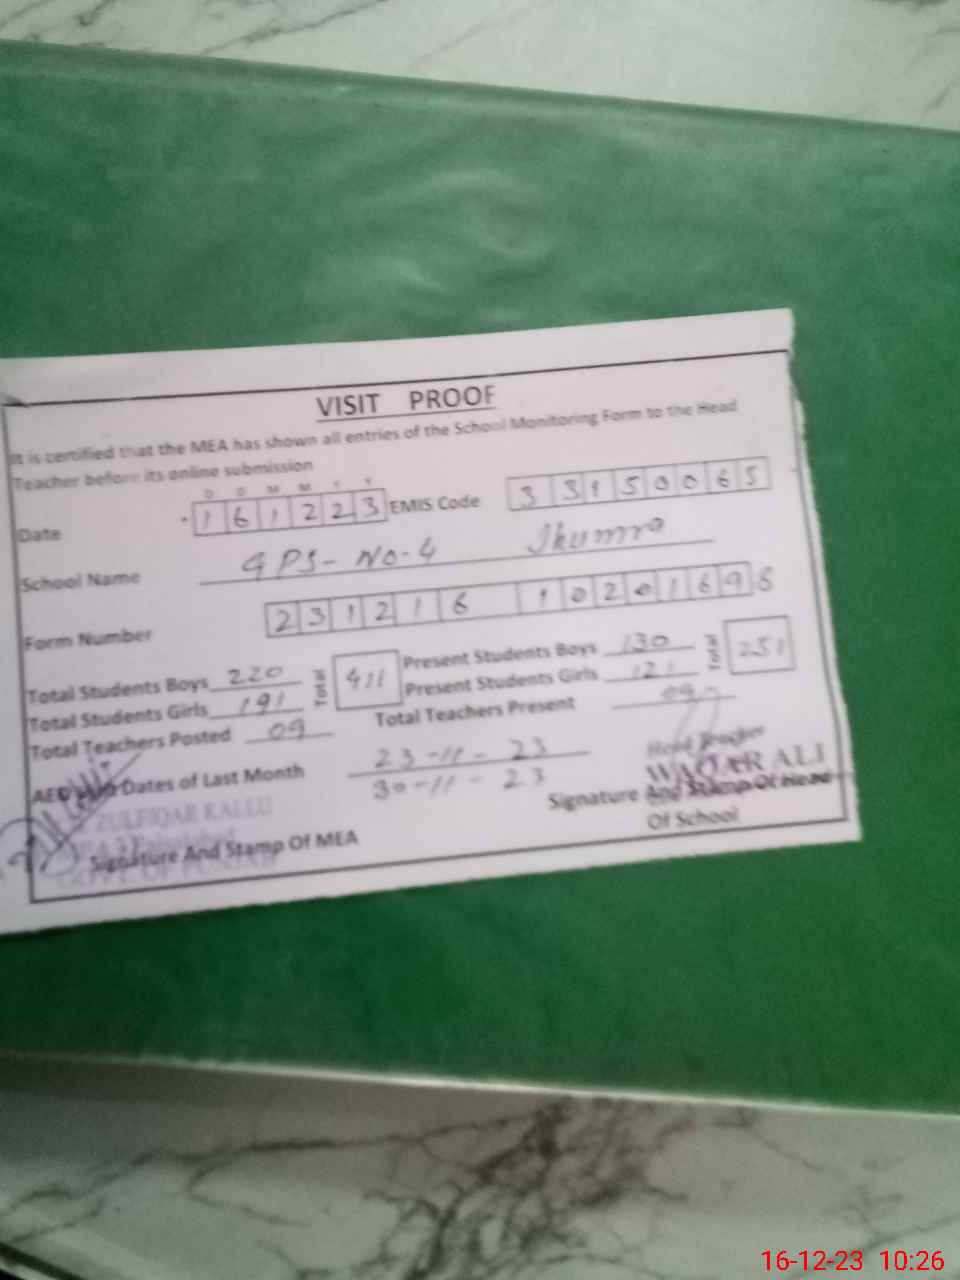 VISIT PROOF
It is certified that the MEA has shown all entries of the School Monitoring Form to the Head
Teacher before its online submission
D D M M Y Y
Date 161223 EMIS Code 33150065
School Name GPS-NO-4 Jhumra
Form Number 231216 10201696
Total Students Boys 220 Total 411 Present Students Boys 130 Total 251
Total Students Girls 191 Present Students Girls 121
Total Teachers Posted 09 Total Teachers Present 09
Head Teacher
WAQAR ALI
AEO Visit Dates of Last Month 23-11-23
30-11-23
ZULFIQAR KALLU
Signature And Stamp Of MEA
Signature And Stamp Of Head
Of School
16-12-23 10:26